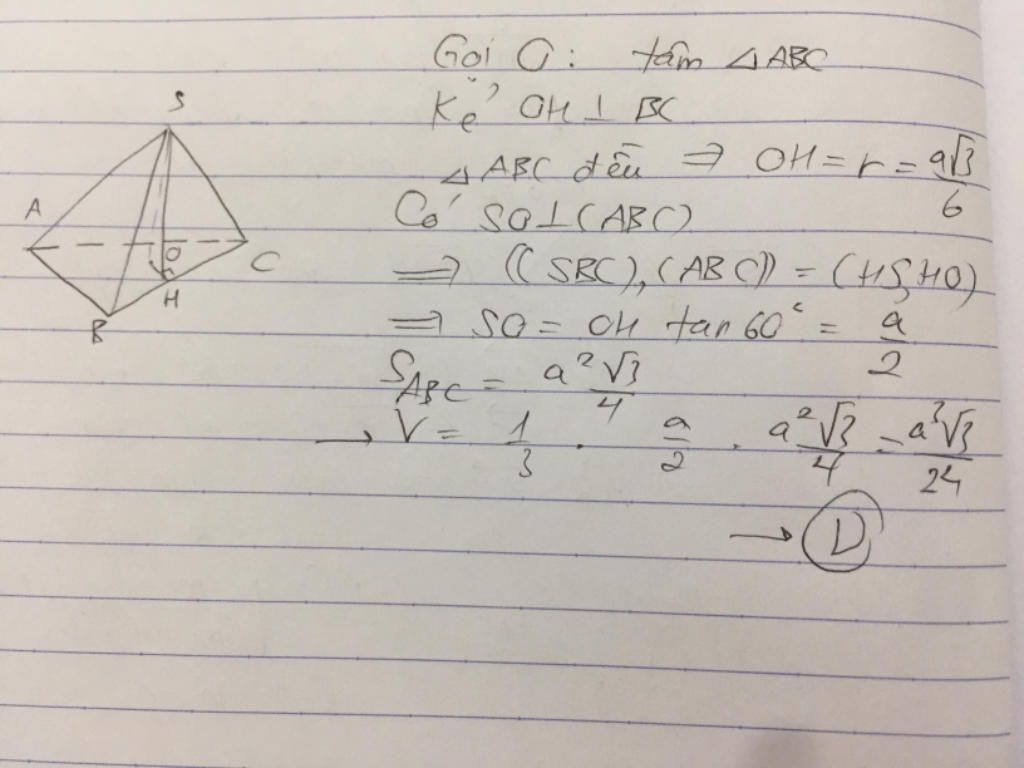 Gọi O: tâm △ABC
Kẻ OH ⊥ BC
△ABC đều ⇒ OH = r = a√3/6
Có SO ⊥ (ABC)
⇒ ((SBC), (ABC)) = (HS, HO)
⇒ SO = OH tan 60° = a/2
S_ABC = a²√3/4
→ V = 1/3 · a/2 · a²√3/4 = a³√3/24
→ D
S
A
O
C
H
B